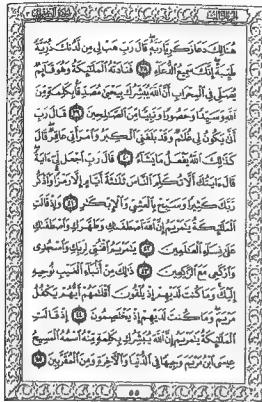 الجزء الثالث سورة آل عمران ٣
هُنَالِكَ دَعَا زَكَرِيَّا رَبَّهُۥ قَالَ رَبِّ هَبْ لِي مِن لَّدُنكَ ذُرِّيَّةً
طَيِّبَةً إِنَّكَ سَمِيعُ ٱلدُّعَآءِ ٣٨ فَنَادَتْهُ ٱلْمَلَٰٓئِكَةُ وَهُوَ قَآئِمٌ
يُصَلِّي فِي ٱلْمِحْرَابِ أَنَّ ٱللَّهَ يُبَشِّرُكَ بِيَحْيَىٰ مُصَدِّقًۢا بِكَلِمَةٍ مِّنَ
ٱللَّهِ وَسَيِّدًا وَحَصُورًا وَنَبِيًّا مِّنَ ٱلصَّٰلِحِينَ ٣٩ قَالَ رَبِّ
أَنَّىٰ يَكُونُ لِي غُلَٰمٌ وَقَدْ بَلَغَنِيَ ٱلْكِبَرُ وَٱمْرَأَتِي عَاقِرٌ قَالَ
كَذَٰلِكَ ٱللَّهُ يَفْعَلُ مَا يَشَآءُ ٤٠ قَالَ رَبِّ ٱجْعَل لِّيٓ ءَايَةً
قَالَ ءَايَتُكَ أَلَّا تُكَلِّمَ ٱلنَّاسَ ثَلَٰثَةَ أَيَّامٍ إِلَّا رَمْزًا وَٱذْكُر
رَّبَّكَ كَثِيرًا وَسَبِّحْ بِٱلْعَشِيِّ وَٱلْإِبْكَٰرِ ٤١ وَإِذْ قَالَتِ
ٱلْمَلَٰٓئِكَةُ يَٰمَرْيَمُ إِنَّ ٱللَّهَ ٱصْطَفَىٰكِ وَطَهَّرَكِ وَٱصْطَفَىٰكِ
عَلَىٰ نِسَآءِ ٱلْعَٰلَمِينَ ٤٢ يَٰمَرْيَمُ ٱقْنُتِي لِرَبِّكِ وَٱسْجُدِي
وَٱرْكَعِي مَعَ ٱلرَّٰكِعِينَ ٤٣ ذَٰلِكَ مِنْ أَنۢبَآءِ ٱلْغَيْبِ نُوحِيهِ
إِلَيْكَ وَمَا كُنتَ لَدَيْهِمْ إِذْ يُلْقُونَ أَقْلَٰمَهُمْ أَيُّهُمْ يَكْفُلُ
مَرْيَمَ وَمَا كُنتَ لَدَيْهِمْ إِذْ يَخْتَصِمُونَ ٤٤ إِذْ قَالَتِ
ٱلْمَلَٰٓئِكَةُ يَٰمَرْيَمُ إِنَّ ٱللَّهَ يُبَشِّرُكِ بِكَلِمَةٍ مِّنْهُ ٱسْمُهُ ٱلْمَسِيحُ
عِيسَى ٱبْنُ مَرْيَمَ وَجِيهًا فِي ٱلدُّنْيَا وَٱلْأٓخِرَةِ وَمِنَ ٱلْمُقَرَّبِينَ ٤٥
٥٥